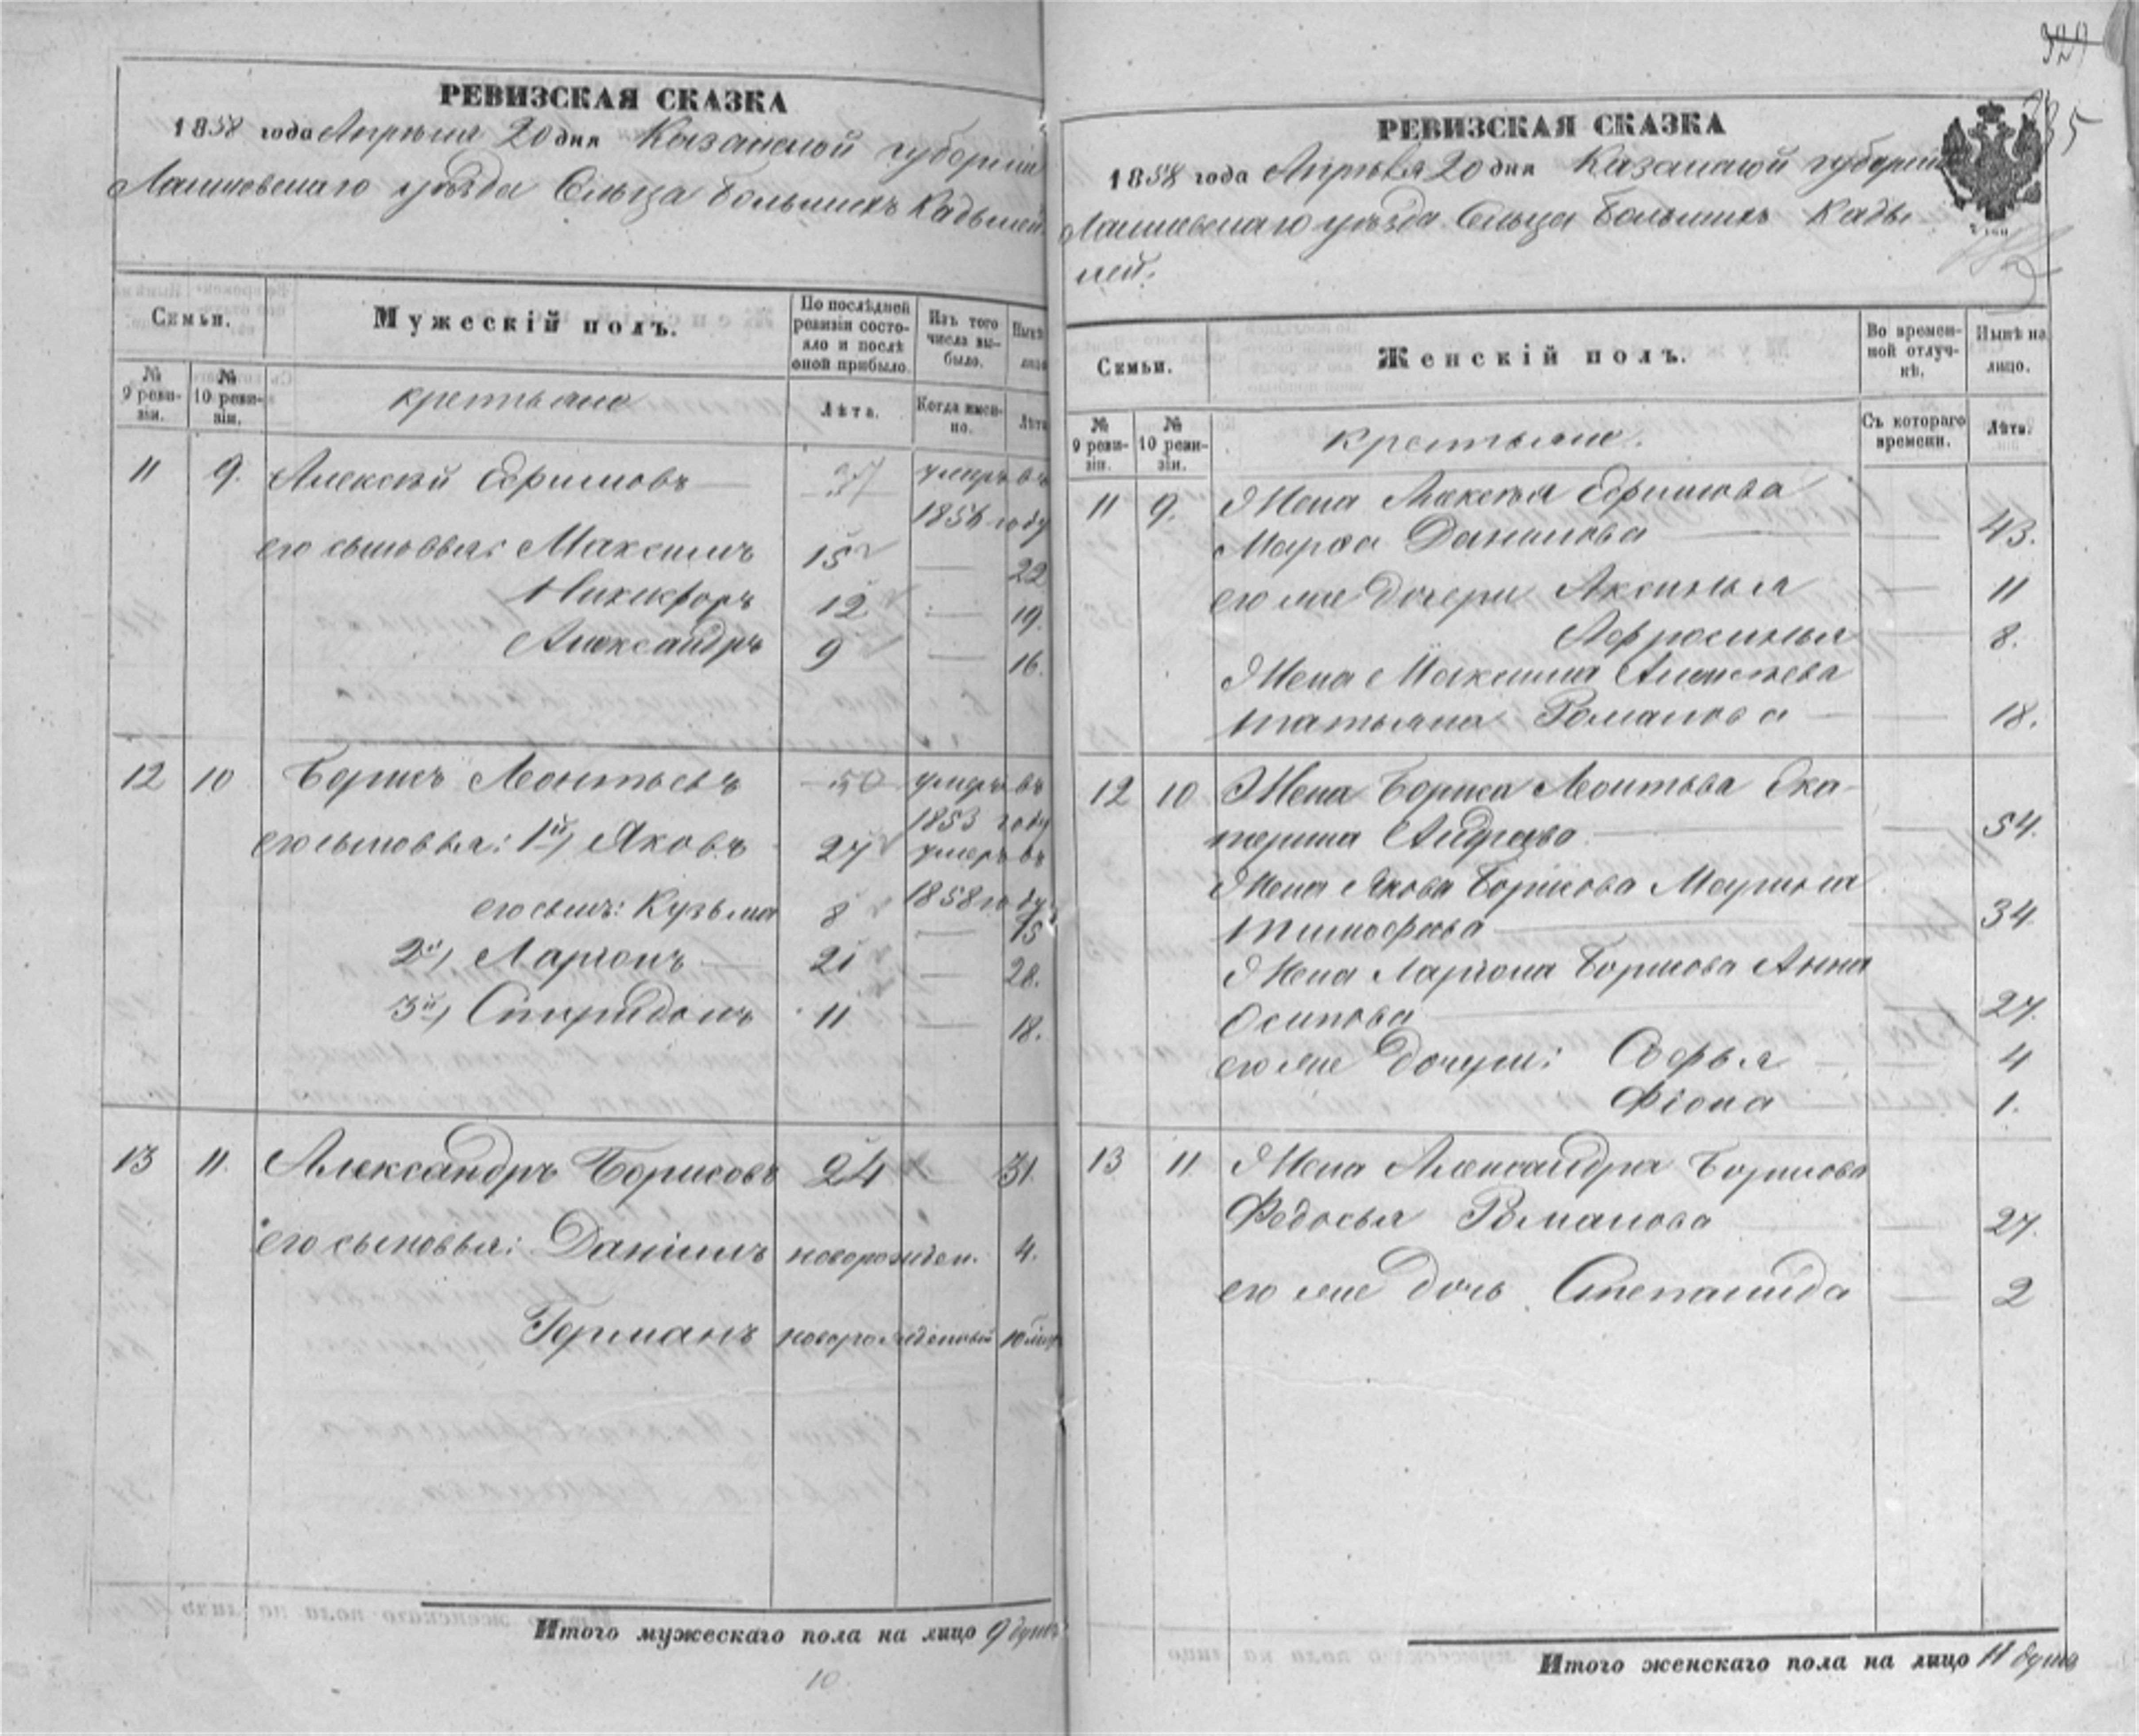 РЕВИЗСКАЯ СКАЗКА
1858 года Апрѣля 20 дня Казанской губерніи
Лаишевскаго уѣзда Сельца Большихъ Кадылей
Семьи.
Мужескій полъ.
По послѣдней ревизіи состояло и послѣ оной прибыло.
Изъ того числа выбыло.
Нынѣ
№ 9 ревизіи.
№ 10 ревизіи.
крестьяне
Лѣта.
Когда именно.
Лѣта
11 9. Алексѣй Ефимовъ умеръ въ
1856 году
его сыновья: Максимъ 15 — 22
Никифоръ 12 — 19.
Александръ 9 — 16.
12 10 Борисъ Леонтьевъ 50 умеръ въ
1853 году
его сыновья: 1й, Яковъ 27 умеръ въ
1858 году
его сынъ: Кузьма 8 — 15
2й, Ларіонъ — 21 — 28.
3й, Спиридонъ 11 — 18.
13 11. Александръ Борисовъ 24 — 31.
его сыновья: Даніилъ новорожден. 4.
Германъ новорожденный 10 мѣс
Итого мужескаго пола на лицо 9 душъ
10
329
335
РЕВИЗСКАЯ СКАЗКА
1858 года Апрѣля 20 дня Казанской губерніи
Лаишевскаго уѣзда Сельца Большихъ Кады
лей.
Семьи.
Женскій полъ.
Во временной отлучкѣ.
Нынѣ на лицо.
№ 9 ревизіи.
№ 10 ревизіи.
крестьяне.
Съ котораго времени.
Лѣта.
11 9. Жена Алексѣя Ефимова
Марѳа Данилова — — 43.
его же дочери Аксинья — 11
Афросинья — 8.
Жена Максима Алексѣева
Татьяна Романова — — 18.
12 10 Жена Бориса Леонтьва Ека-
терина Андреева — — 54.
Жена Якова Борисова Марья
Тимофеева — — 34.
Жена Ларіона Борисова Анна
Осипова — 27.
его же дочери: Софья — — 4
Фіона — — 1.
13 11. Жена Александра Борисова
Федосья Романова — 27.
его же дочь Степанида — 2
Итого женскаго пола на лицо 11 душъ